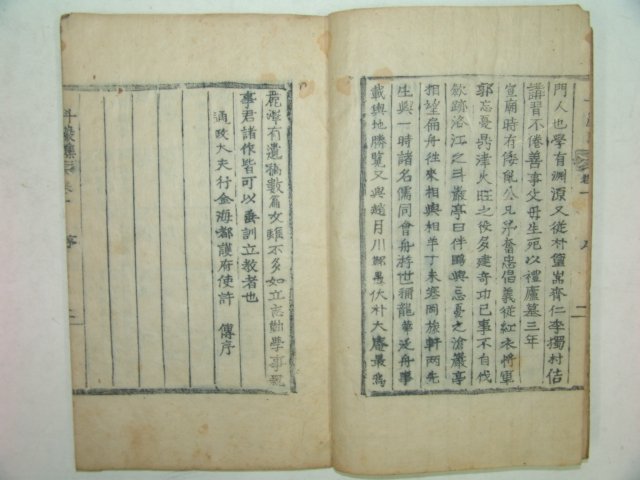 門人也學有淵源又從朴篁嵓齊仁李獨村佶
講習不倦善事父母生死以禮廬墓三年
宣廟時有倭亂公兄弟奮忠倡義從紅衣將軍
郭忘憂具津火旺之役多建奇功已事不自伐
歛跡洛江之斗巖亭日伴鷗與忘憂之滄巖亭
相望扁舟徃來相與相羊丁未寒岡旅軒兩先
生與一時諸名儒同會舟游世稱龍華泛舟事
載輿地勝覽又與趙月川鄭愚伏朴大庵最爲
麗澤有遺稿數篇文雖不多如立志勤學事親
事君諸作皆可以垂訓立敎者也
通政大夫行金海都護府使許 傳序
斗巖集 卷一 序 二